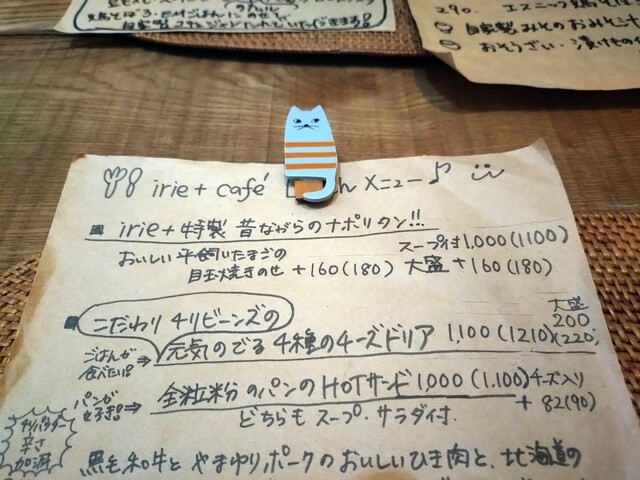 290. エスニック
自家製みそのおみそ汁
おそうざい・漬けもの
irie+ café んメニュー♪
irie+特製 昔ながらのナポリタン!!
スープ付 1,000(1100)
おいしい平飼いたまごの
目玉焼きのせ +160(180) 大盛 +160(180)
こだわり チリビーンズの
大盛
200
(220)
ごはんが
食べたい!!
元気のでる 4種のチーズドリア 1,100(1210)
パンが
好き!!
全粒粉のパンのHOTサンド 1,000(1,100) チーズ入り
+82(90)
どちらも スープ・サラダ付.
チリパウダー
辛さ
加減
黒毛和牛と やまゆりポークのおいしいひき肉と、北海道の